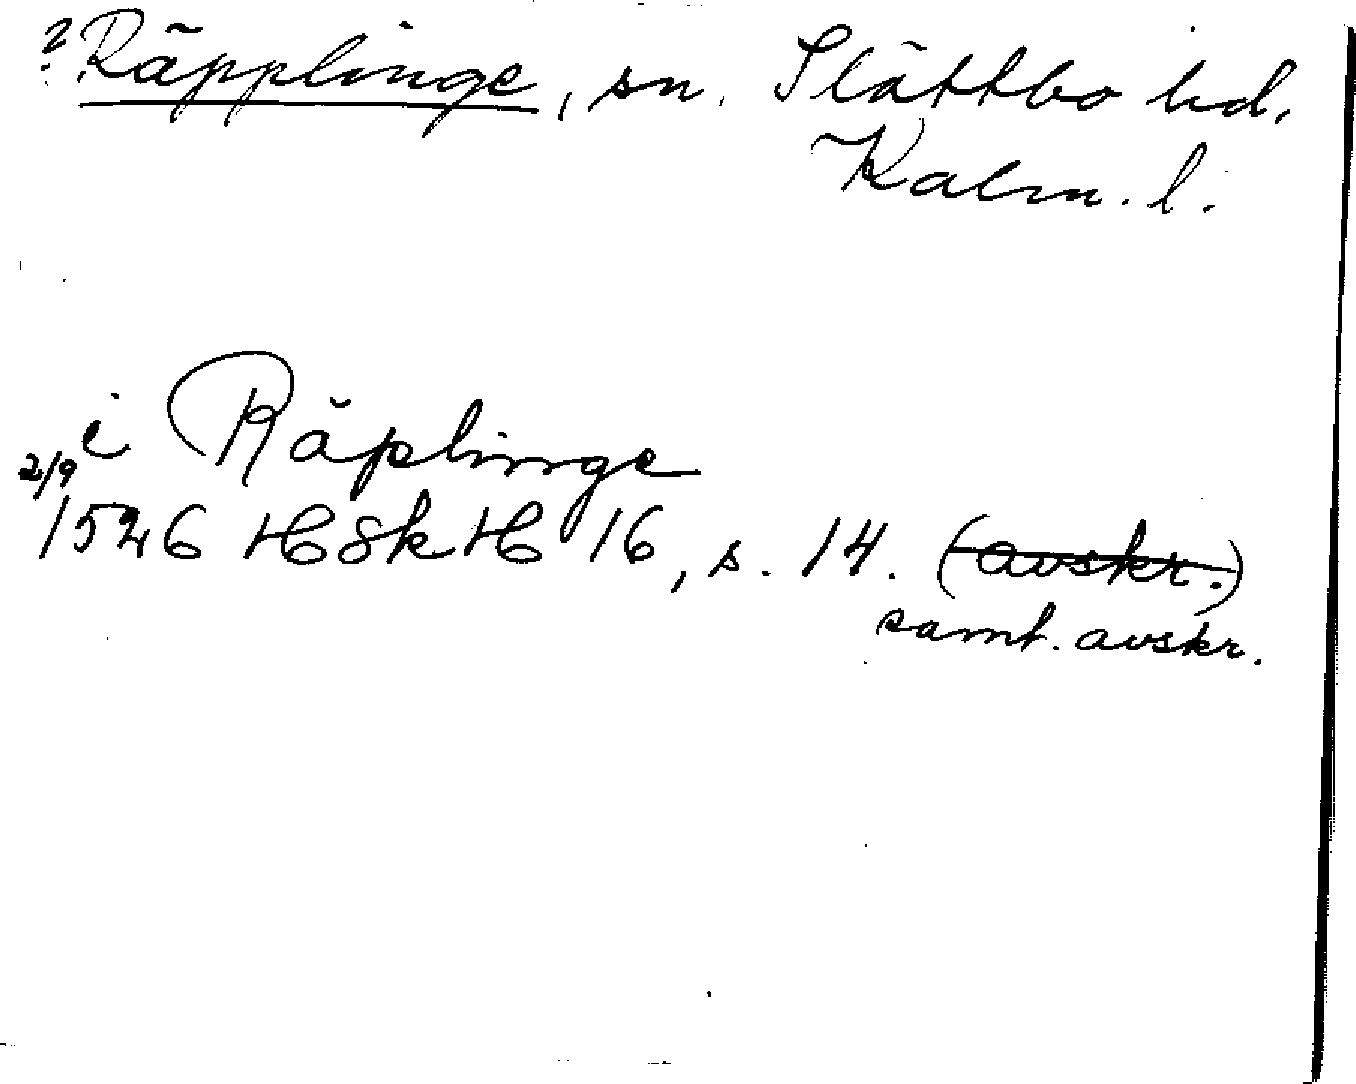 ? Räpplinge, sn. Slättbo hd.
Kalm. l.
i Räplinge
2/9 1526 HSkH 16, s. 14. (avskr.)
samt. avskr.